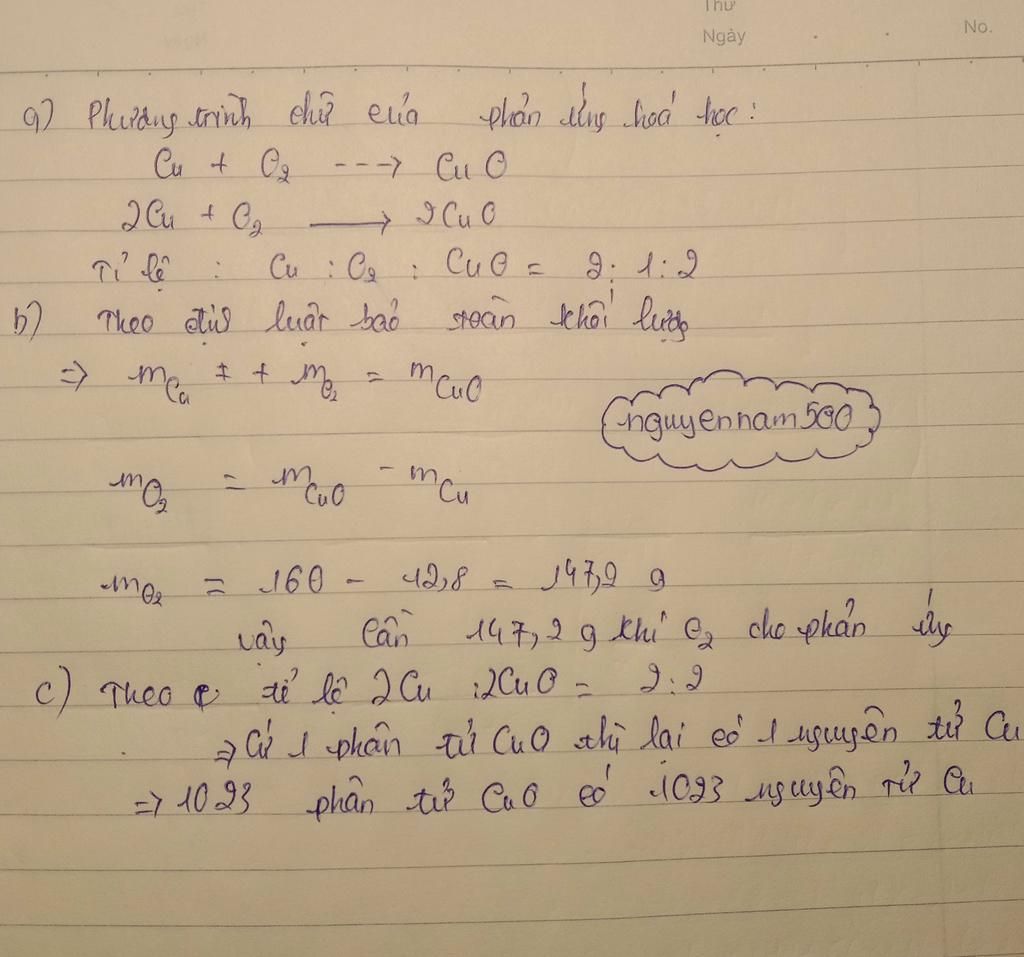 Thứ
Ngày
No.
a) Phương trình chữ của phản ứng hoá học:
Cu + O₂ ---> CuO
2Cu + O₂ ⟶ 2CuO
Tỉ lệ : Cu : O₂ : CuO = 2:1:2
b) Theo định luật bảo toàn khối lượng
=> mCu + + mO₂ = mCuO
nguyennam500
mO₂ = mCuO - mCu
mO₂ = 160 - 12,8 = 147,2 g
vậy cần 147,2 g khí O₂ cho phản ứng
c) Theo tỉ lệ 2Cu :2CuO = 2:2
=> Cứ 1 phân tử CuO thì lại có 1 nguyên tử Cu
=> 1023 phân tử CuO có 1023 nguyên tử Cu